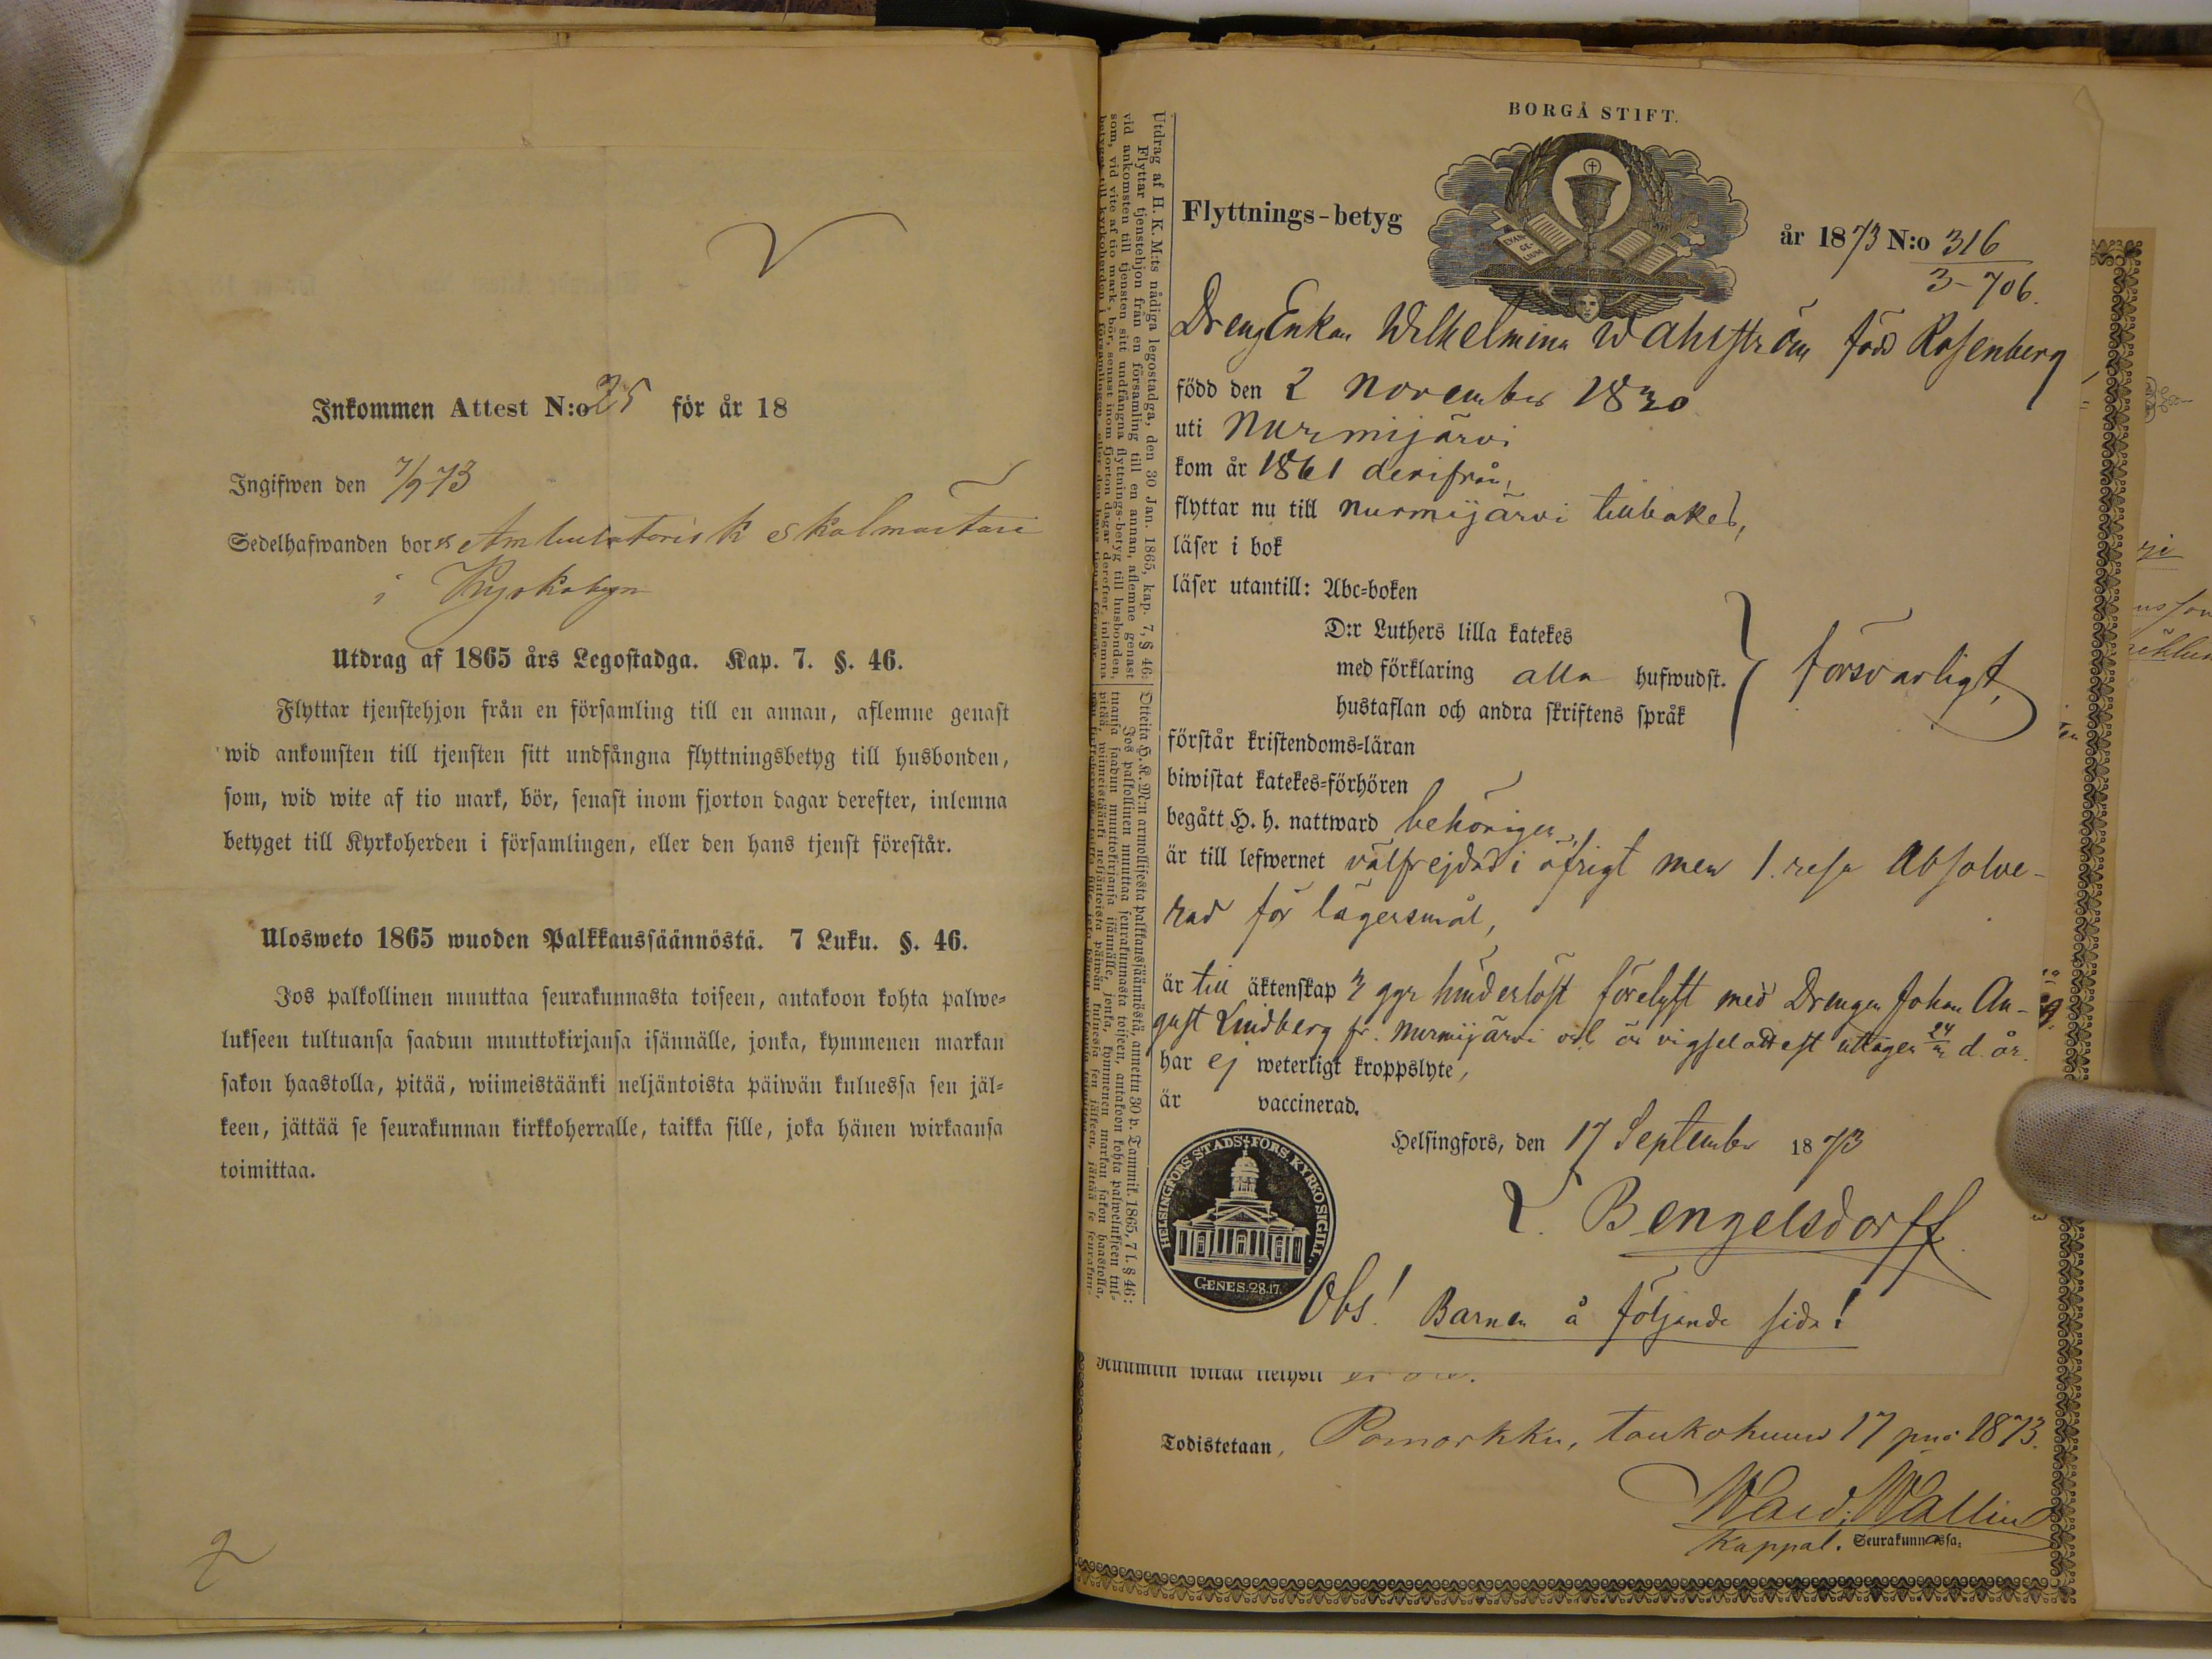 Inkommen Attest N:o 25 för år 18
Ingifwen den 7/9 73
Sedelhafwanden bor Ambulatorisk skolmästare
i
Utdrag af 1865 års Legostadga. Kap. 7. §. 46.
Flyttar tjenstehjon från en församling till en annan, aflemne genast
wid ankomsten till tjensten sitt undfångna flyttningsbetyg till husbonden,
som, wid wite af tio mark, bör, senast inom fjorton dagar derefter, inlemna
betyget till Kyrkoherden i församlingen, eller den hans tjenst förestår.
Ulosweto 1865 wuoden Palkkaussäännöstä. 7 Luku. §. 46.
Jos palkollinen muuttaa seurakunnasta toiseen, antakoon kohta palwe-
lukseen tultuansa saadun muuttokirjansa isännälle, jonka, kymmenen markan
sakon haastolla, pitää, wiimeistäänki neljäntoista päiwän kuluessa sen jäl-
keen, jättää se seurakunnan kirkkoherralle, taikka sille, joka hänen wirkaansa
toimittaa.
2
Utdrag af H. K. M:ts nådiga legostadga, den 30 Jan. 1865, kap. 7, § 46:
Flyttar tjenstehjon från en församling till en annan, aflemne genast
vid ankomsten till tjensten sitt undfångna flyttnings-betyg till husbonden,
som, vid vite af tio mark, bör, senast inom fjorton dagar derefter, inlemna
betyget till kyrkoherden i församlingen, eller den hans tjenst förestår.
Otteita H. K. M:n armollisesta palkkaussäännöstä, annettu 30 p. Tammik. 1865, 7 l. § 46:
Jos palkollinen muuttaa seurakunnasta toiseen, antakoon kohta palwelukseen tul-
tuansa saadun muuttokirjansa isännälle, jonka, kymmenen markan sakon haastolla,
pitää, wiimeistäänki neljäntoista päiwän kuluessa sen jälkeen, jättää se seurakun-
BORGÅ STIFT.
EVAN-
GE-
LIUM
Flyttnings-betyg
år 1873 N:o 316
3-706.
DrengEnkan Wilhelmina Wahlström född Rosenberg
född den 2 November 1830
uti Nurmijärvi
kom år 1861 derifrån,
flyttar nu till Nurmijärvi tillbaka,
läser i bok
läser utantill: Abc-boken
D:r Luthers lilla katekes
med förklaring alla hufwudst.
hustaflan och andra skriftens språk
försvarligt,
förstår kristendoms-läran
biwistat katekes-förhören
begått H. h. nattward behörigen,
är till lefwernet välfrejdad i öfrigt men 1. resa Absolve-
rad för lägersmål,
är till äktenskap 3 ggr hinderlöst förelyst med Drengen Johan Au-
gust Lindberg fr. Nurmijärvi och är vigselattest uttagen d. år.
har ej weterligt kroppslyte,
är vaccinerad.
Helsingfors, den 17 September 1873
Bengelsdorff
HELSINGFORS STADS FÖRS. KYRKOSIGILL.
GENES. 28.17.
Obs! Barnen å följande sida!
Todistetaan, Pomarkku, toukokuun 17 pnä 1873.
Wald. Wallin
Kappal. Seurakunnassa.